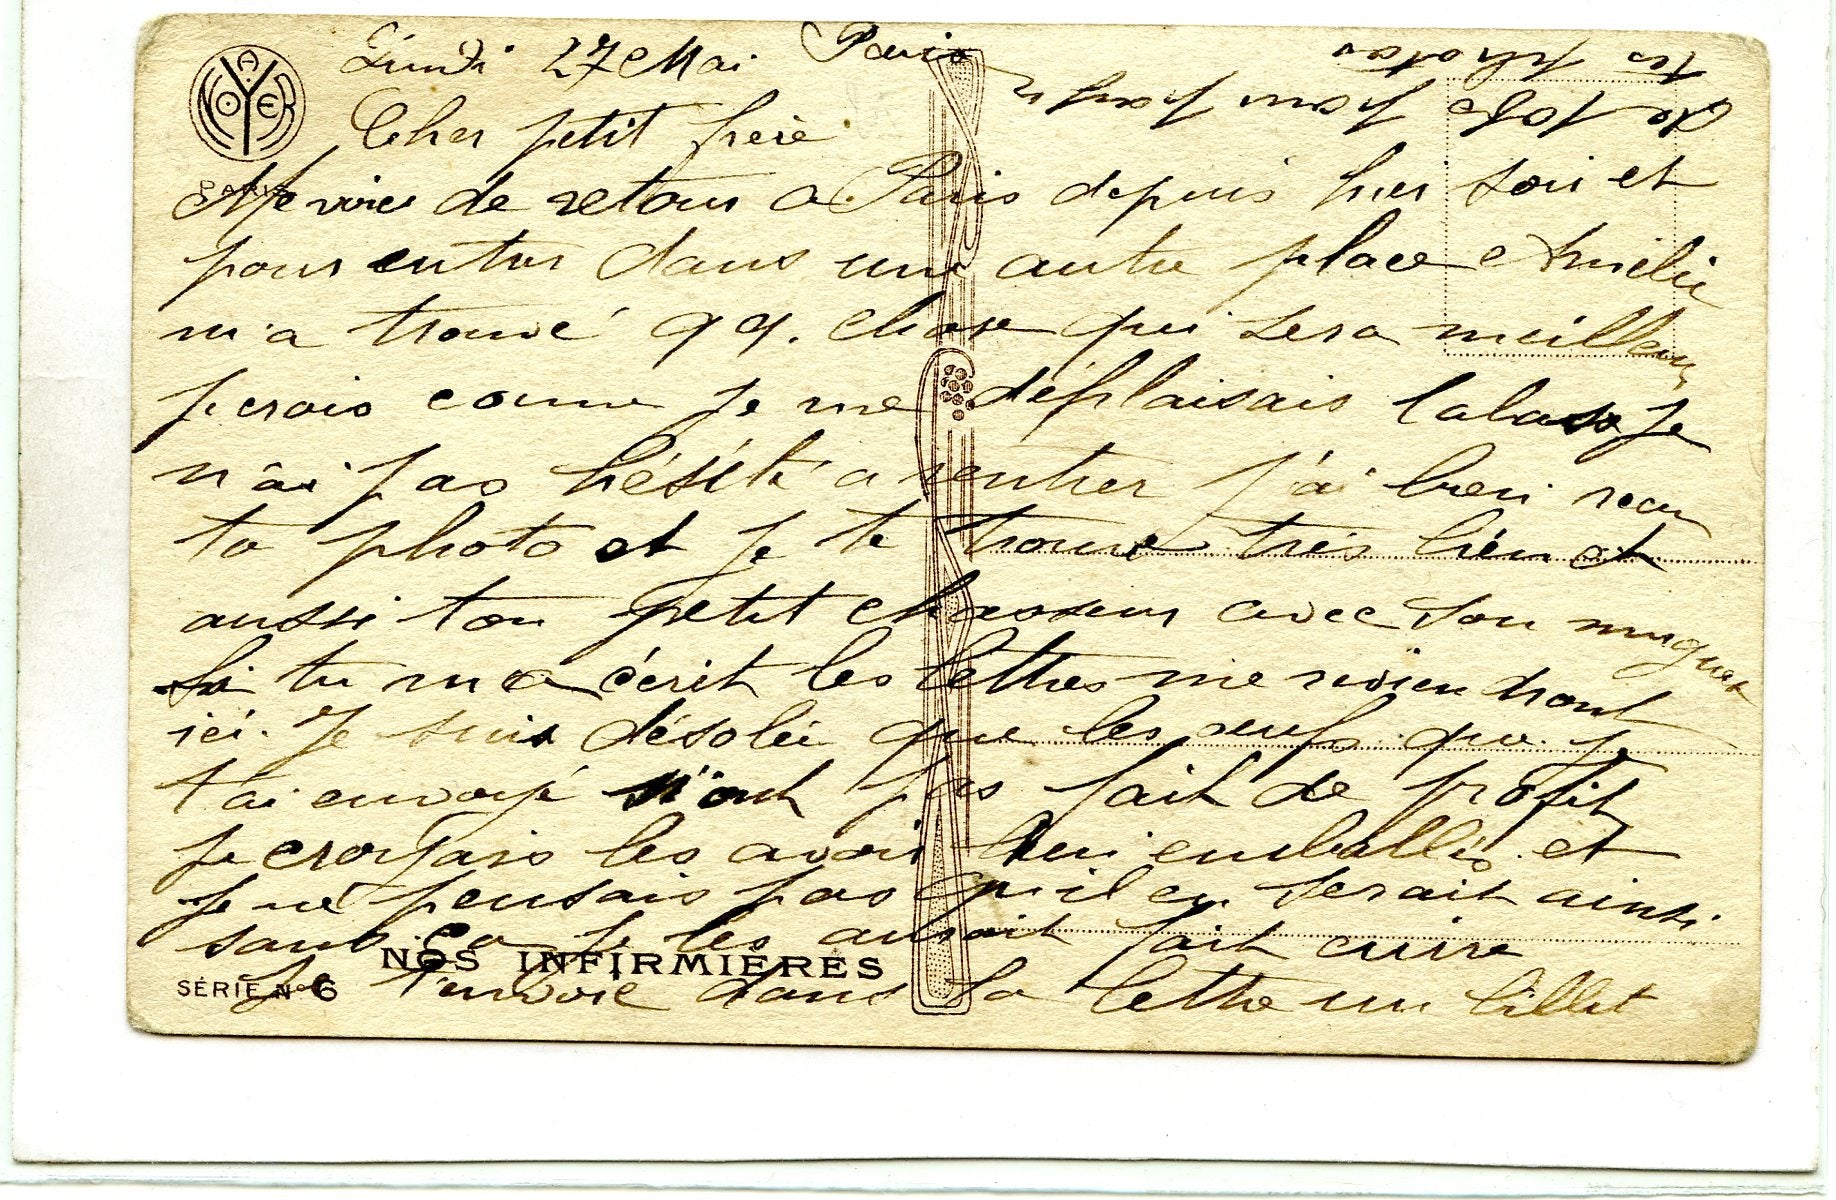 Lundi 27 Mai Paris
Cher petit frère
Me voici de retour a Paris depuis hier soir et
pour entrer dans une autre place Amélie
m'a trouvé qq. chose qui sera meilleur
je crois comme je me déplaisais labas je
n'ai pas hésité a rentrer j'ai bien recu
ta photo et je te trouve très bien et
aussi ton petit chasseur avec son muguet
Si tu m'a écrit les lettres me reviendront
ici. Je suis désolée que les oeufs que je
t'ai envoyé n'ont pas fait de profit
je croyais les avoir bien emballés et
je ne pensais pas qu'il en serait ainsi
sans ça je les aurait fait cuire
Je t'envoie dans la lettre un billet
de 10f pour payer
tes photos
NOYER
PARIS
NOS INFIRMIÈRES
SÉRIE N° 6